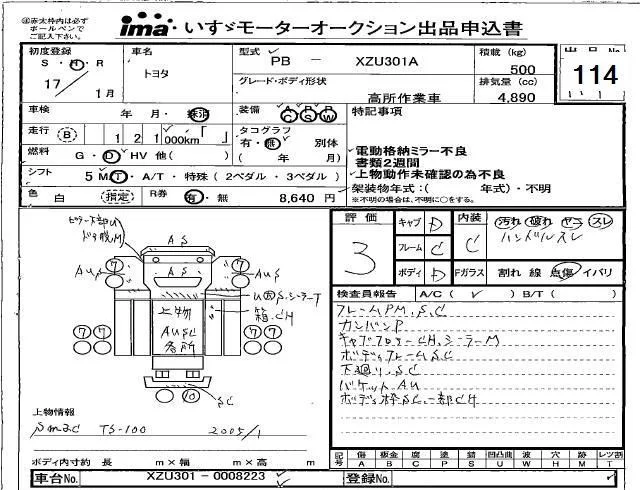 ㊟赤太枠内は必ず
ボールペンで
ご記入下さい。
ima いすゞモーターオークション出品申込書
初度登録
S・H・R
17 / 1月
車名
トヨタ
型式
PB - XZU301A
グレード・ボディ形状
高所作業車
積載 (kg)
500
排気量 (cc)
4,890
出品No.
114
車検
年 月・抹消
装備 A P R C S W
特記事項
走行 B 121,000km
タコグラフ
有・無 別体
( 年 月)
燃料 G・D・HV 他( )
シフト 5 MT・A/T・特殊 (2ペダル・3ペダル)
色 白 (指定) R券 有・無 8,640 円
電動格納ミラー不良
書類2週間
上物動作未確認の為不良
架装物年式:( 年式)・不明
※不明の場合は、不明に○をする。
評価
3
キャブ D
フレーム C
ボディ D
内装 C
Fガラス
汚れ 破れ ヤニ スレ
ハンドルスレ
割れ 線 点傷 イバリ
検査員報告 A/C ( ✓ ) B/T ( )
フレームPM.S.C
カンバンP
キャブフロアーCH.シーラーM
ボディフレームS.C
下廻り.S.C
バケットAU
ボディ枠SC.一部CH
AS
AUS
AUS
U凶S.シーラーT
箱.CH
上物
AUSC
各所
SC
⑦
⑦
⑦
⑦
⑦⑦
⑦⑦
⑩
上物情報
Smac TS-100 2005/1
ボディ内寸約 長 m×幅 m×高 m
記号
傷 鈑金 腐 塗 錆 凹凸曲 波 穴 跡 レツ割
A B C P S U W H M T
車台No. XZU301-0008223
登録No.